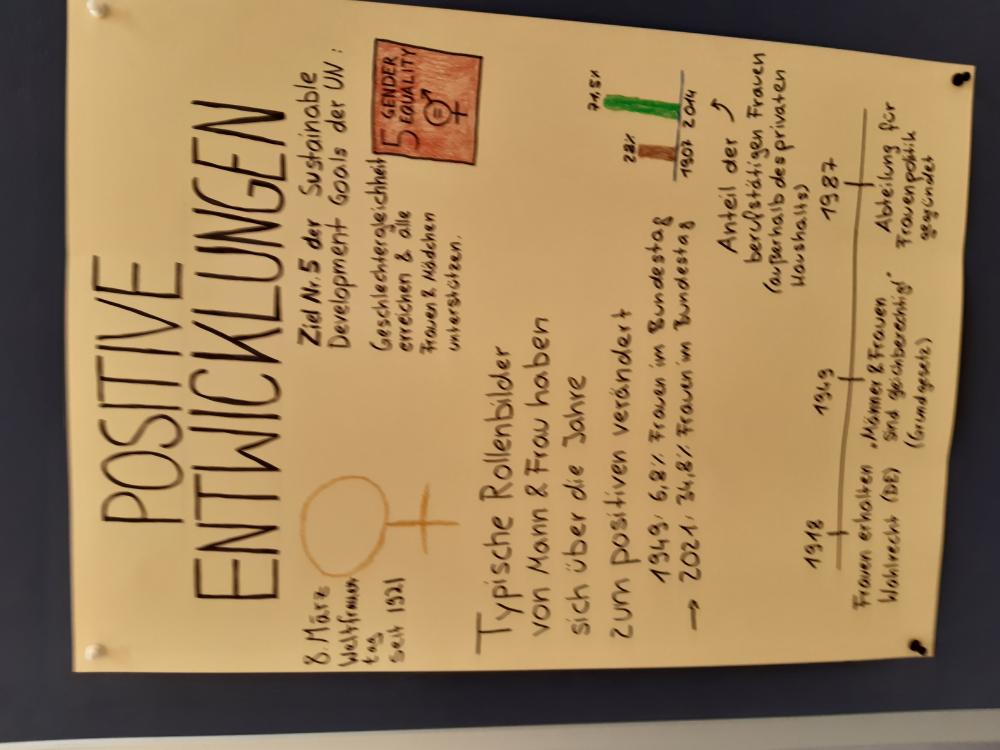 POSITIVE
ENTWICKLUNGEN
8. März
Weltfrauen
tag
seit 1921
Ziel Nr. 5 der Sustainable
Development Goals der UN:
Geschlechtergleichheit
erreichen & alle
Frauen & Mädchen
unterstützen.
5 GENDER
EQUALITY
Typische Rollenbilder
von Mann & Frau haben
sich über die Jahre
zum positiven verändert
1949: 6,8% Frauen im Bundestag
→ 2021: 34,8% Frauen im Bundestag
28%
71,5%
1907 2014
Anteil der
berufstätigen Frauen
(außerhalb des privaten
Haushalts)
1918
Frauen erhalten
Wahlrecht (DE)
1949
„Männer & Frauen
sind gleichberechtigt"
(Grundgesetz)
1987
Abteilung für
Frauenpolitik
gegründet